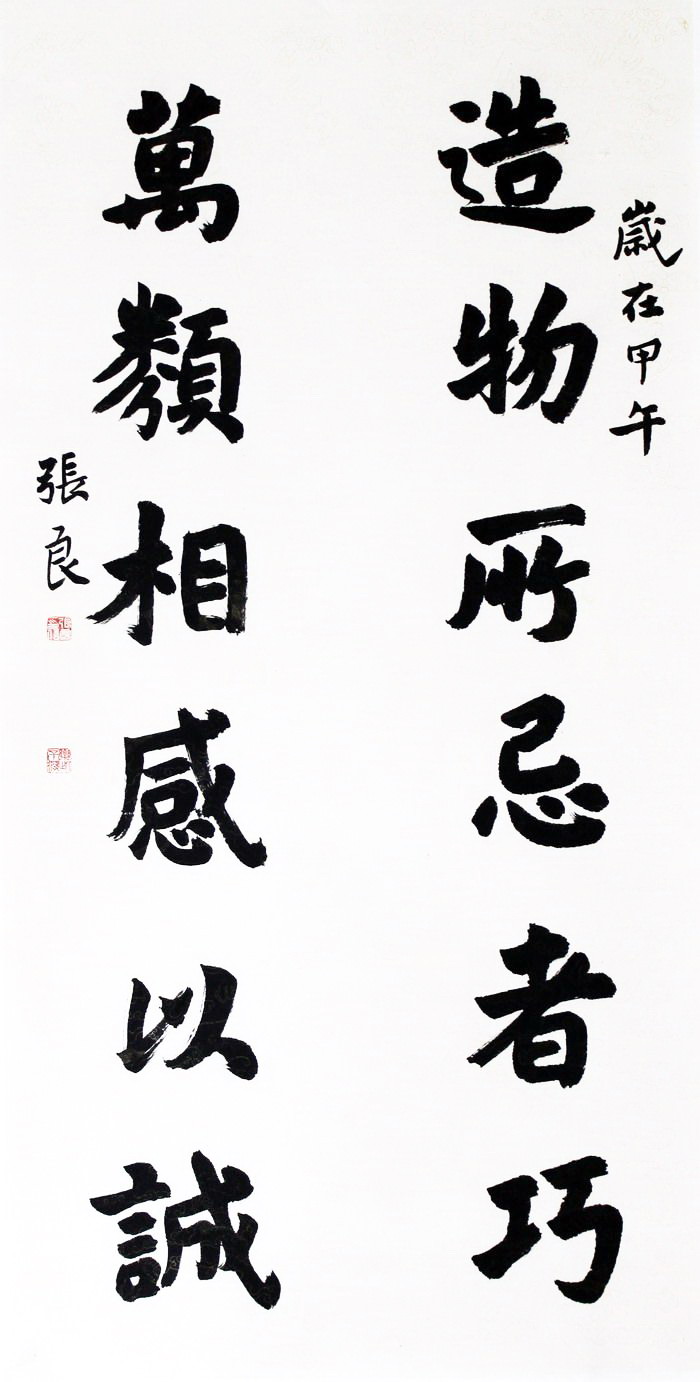 歲在甲午
造物所忌者巧
萬類相感以誠
張良